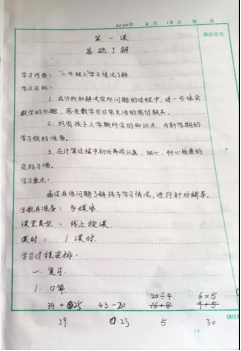 2020 2 13
第一课
基础了解
学习内容："二年级上"学习情况了解
学习目标：
1. 在分析和解决实际问题的过程中，进一步体会
数学的乐趣，感受数学与日常生活的密切联系。
2. 巩固孩子上学期所学的知识点，为新学期的
学习做好准备。
3. 在计算过程中培养成认真、细心、耐心检查的
良好习惯。
学习重点：
通过具体问题了解孩子学习情况，进行针对辅导。
学教具准备：多媒体
课堂类型：线上授课
课时：1课时
学习过程安排：
一、复习
1. 口算
20÷4 6×5
43-20
39 23 5 30